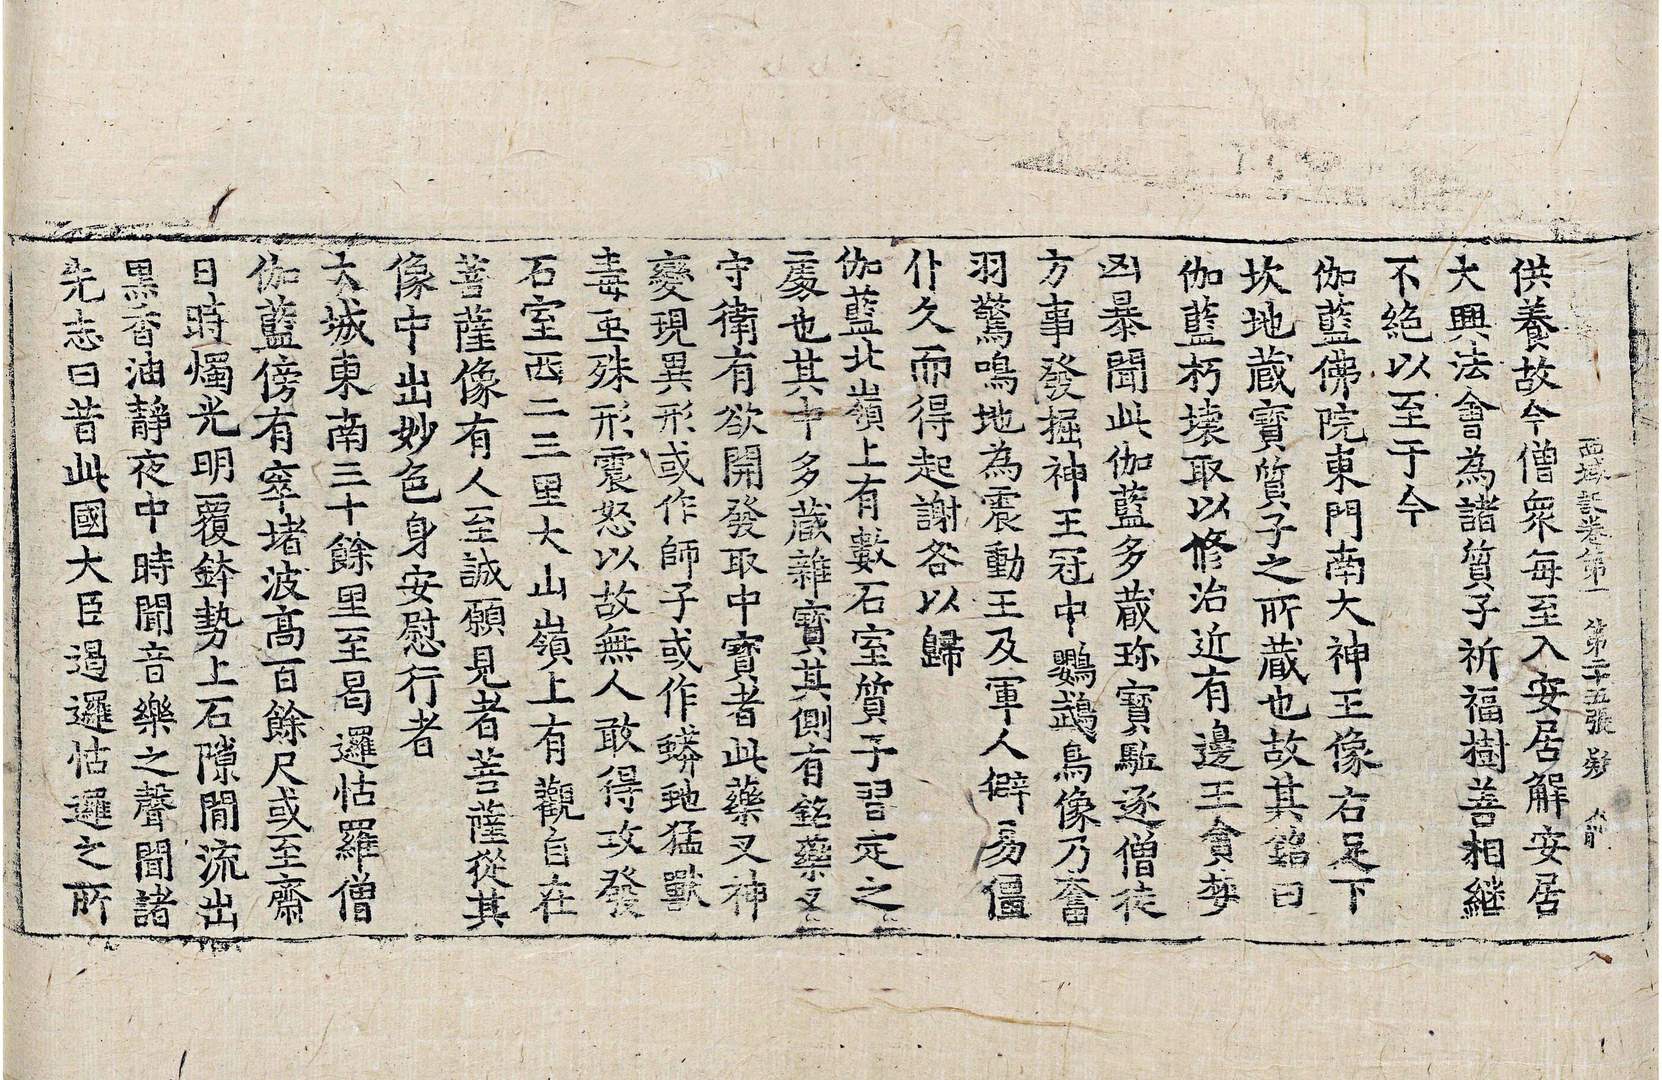 西域記卷第一 第二十五張 疑
供養故今僧衆每至入安居解安居
大興法會為諸質子祈福樹善相継
不絶以至于今
伽藍佛院東門南大神王像右足下
坎地蔵寶質子之所蔵也故其銘曰
伽藍朽壊取以修治近有邊王貪婪
凶暴聞此伽藍多蔵珎寶駈逐僧徒
方事發掘神王冠中鸚鵡鳥像乃奮
羽驚鳴地為震動王及軍人僻易僵
仆久而得起謝咎以歸
伽藍北嶺上有數石室質子習定之
處也其中多蔵雜寶其側有銘藥叉
守衛有欲開發取中寶者此藥叉神
變現異形或作師子或作蟒虵猛獸
毒䖝殊形震怒以故無人敢得攻發
石室西二三里大山嶺上有觀自在
菩薩像有人至誠願見者菩薩從其
像中出妙色身安慰行者
大城東南三十餘里至曷邏怙羅僧
伽藍傍有窣堵波髙百餘尺或至齋
日時燭光明覆鉢勢上石隙間流出
黒香油靜夜中時聞音樂之聲聞諸
先志曰昔此國大臣遏邏怙邏之所